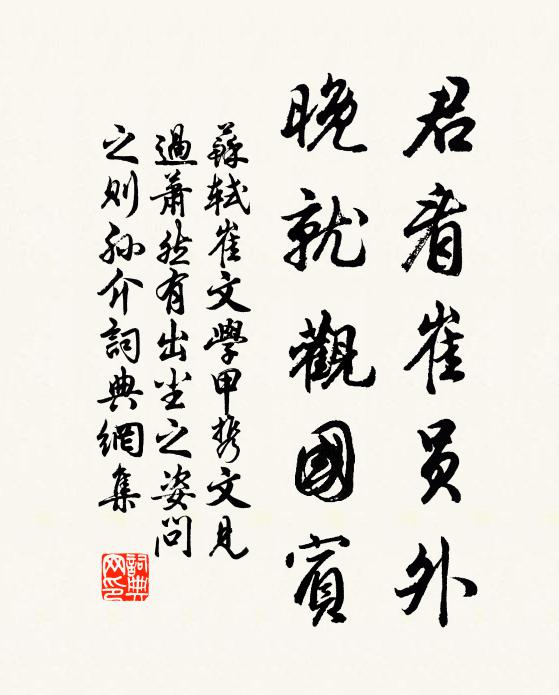 君看崔員外
晚就觀國賓
蘇軾崔文學甲攜文見
過蕭然有出塵之姿問
之則孫介詞典網集
詞典網印